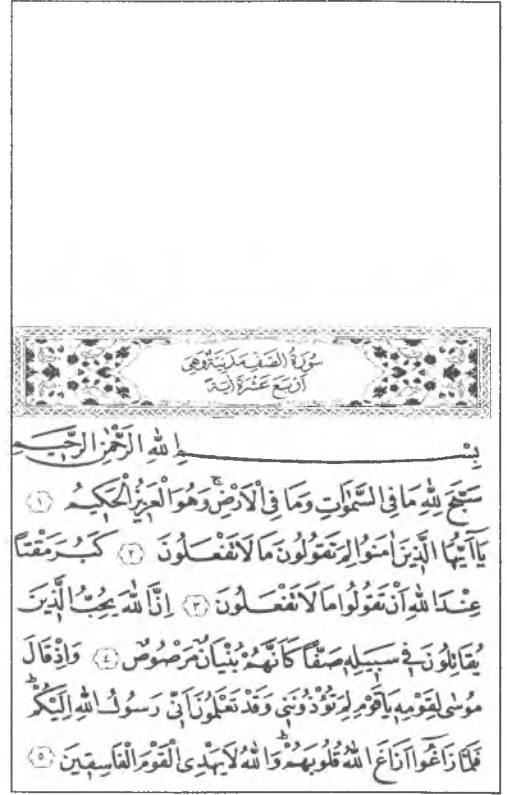 سُورَةُ الصَّفِّ مَدَنِيَّةٌ وَهِيَ
اَرْبَعَ عَشْرَةَ اٰيَةً
بِسْمِ اللّٰهِ الرَّحْمٰنِ الرَّحِيمِ
سَبَّحَ لِلّٰهِ مَا فِي السَّمٰوَاتِ وَمَا فِي الْاَرْضِۚ وَهُوَ الْعَزِيزُ الْحَكِيمُ ﴿١﴾
يَٓا اَيُّهَا الَّذِينَ اٰمَنُوا لِمَ تَقُولُونَ مَا لَا تَفْعَلُونَ ﴿٢﴾ كَبُرَ مَقْتًا
عِنْدَ اللّٰهِ اَنْ تَقُولُوا مَا لَا تَفْعَلُونَ ﴿٣﴾ اِنَّ اللّٰهَ يُحِبُّ الَّذِينَ
يُقَاتِلُونَ فِي سَبِيلِهِ صَفًّا كَاَنَّهُمْ بُنْيَانٌ مَرْصُوصٌ ﴿٤﴾ وَاِذْ قَالَ
مُوسٰى لِقَوْمِهِ يَا قَوْمِ لِمَ تُؤْذُونَنِي وَقَدْ تَعْلَمُونَ اَنِّي رَسُولُ اللّٰهِ اِلَيْكُمْۜ
فَلَمَّا زَاغُٓوا اَزَاغَ اللّٰهُ قُلُوبَهُمْۜ وَاللّٰهُ لَا يَهْدِي الْقَوْمَ الْفَاسِقِينَ ﴿٥﴾